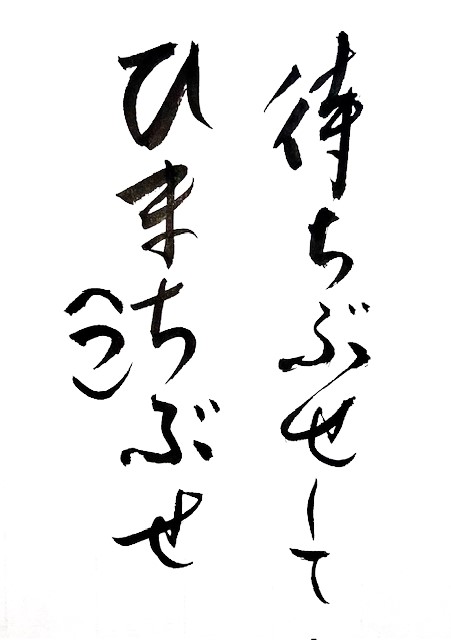 待ちぶせして
ひまちぶせ
(つ)